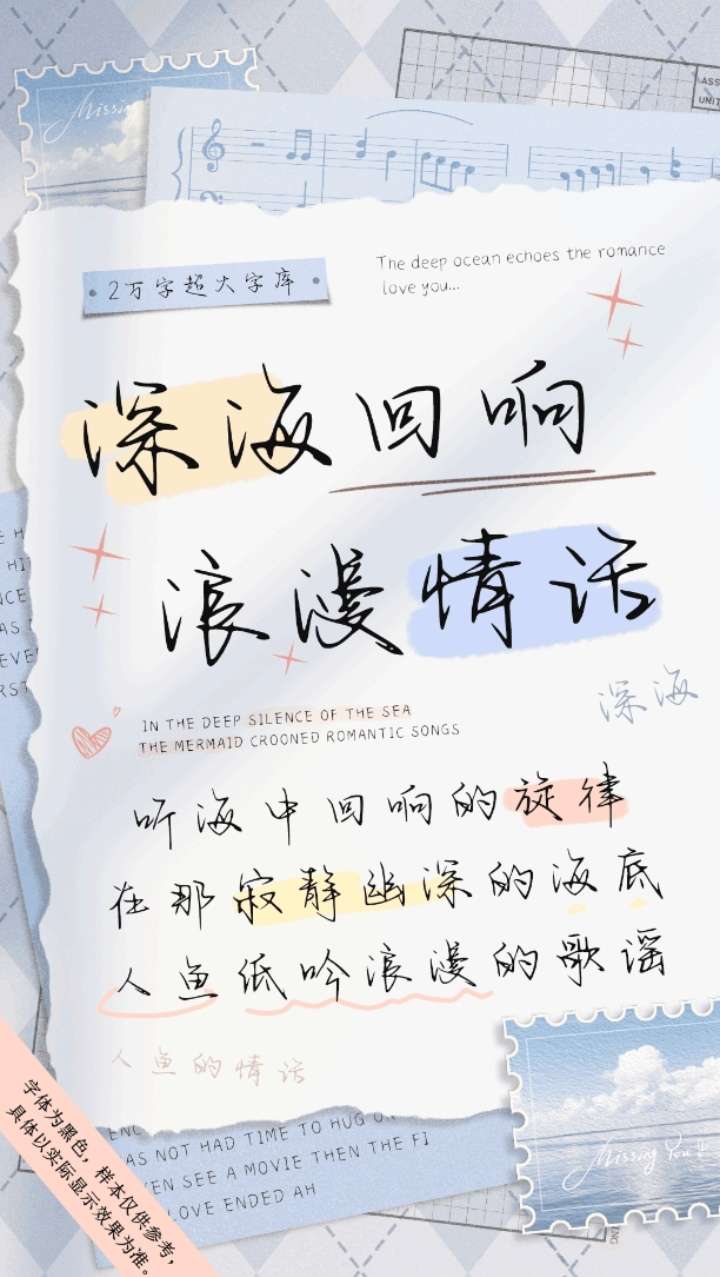 Missing
ASS
UNIT
2万字超大字库
The deep ocean echoes the romance
love you...
深海回响
浪漫情话
深海
IN THE DEEP SILENCE OF THE SEA
THE MERMAID CROONED ROMANTIC SONGS
听海中回响的旋律
在那寂静幽深的海底
人鱼低吟浪漫的歌谣
人鱼的情话
字体为黑色，样本仅供参考，
具体以实际显示效果为准。
AS NOT HAD TIME TO HUG
EN SEE A MOVIE THEN THE FI
LOVE ENDED AH
Missing You